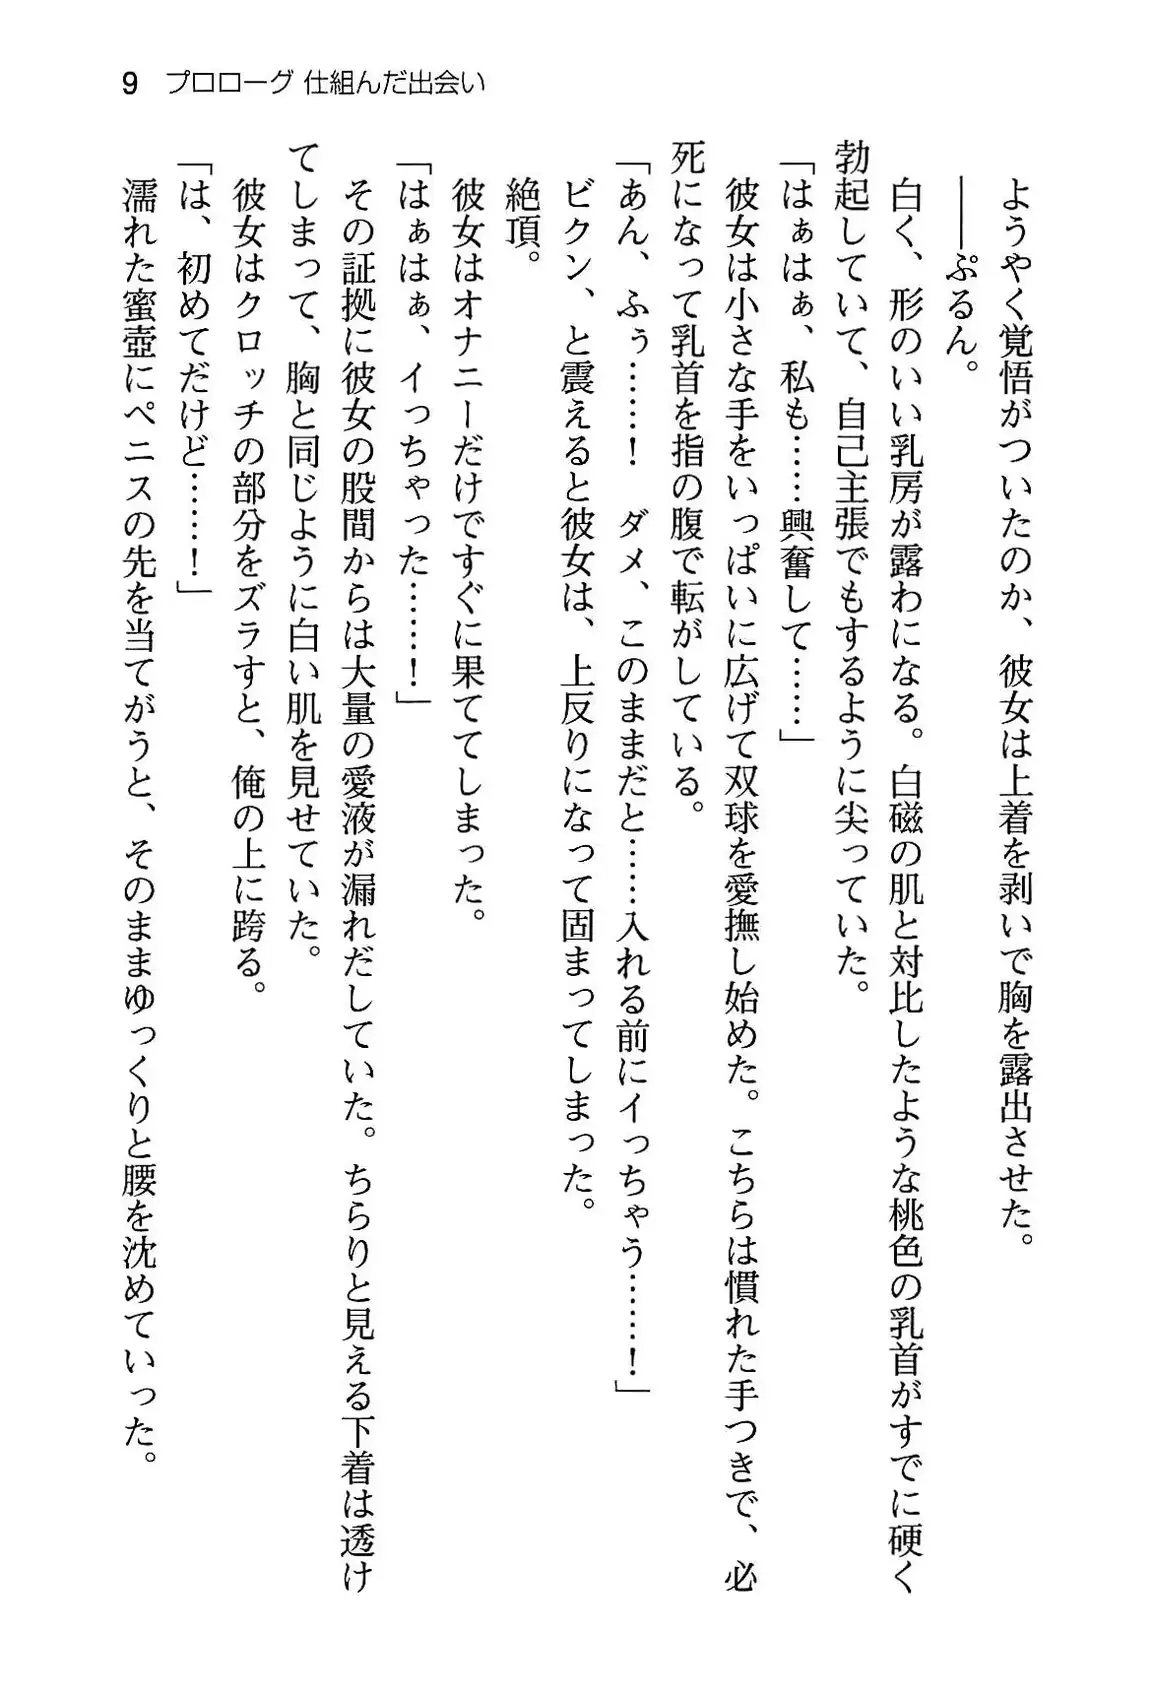 9 プロローグ 仕組んだ出会い
ようやく覚悟がついたのか、彼女は上着を剥いで胸を露出させた。
――ぷるん。
白く、形のいい乳房が露わになる。白磁の肌と対比したような桃色の乳首がすでに硬く
勃起していて、自己主張でもするように尖っていた。
「はぁはぁ、私も……興奮して……」
彼女は小さな手をいっぱいに広げて双球を愛撫し始めた。こちらは慣れた手つきで、必
死になって乳首を指の腹で転がしている。
「あん、ふぅ……！　ダメ、このままだと……入れる前にイっちゃう……！」
ビクン、と震えると彼女は、上反りになって固まってしまった。
絶頂。
彼女はオナニーだけですぐに果ててしまった。
「はぁはぁ、イっちゃった……！」
その証拠に彼女の股間からは大量の愛液が漏れだしていた。ちらりと見える下着は透け
てしまって、胸と同じように白い肌を見せていた。
彼女はクロッチの部分をズラすと、俺の上に跨る。
「は、初めてだけど……！」
濡れた蜜壺にペニスの先を当てがうと、そのままゆっくりと腰を沈めていった。